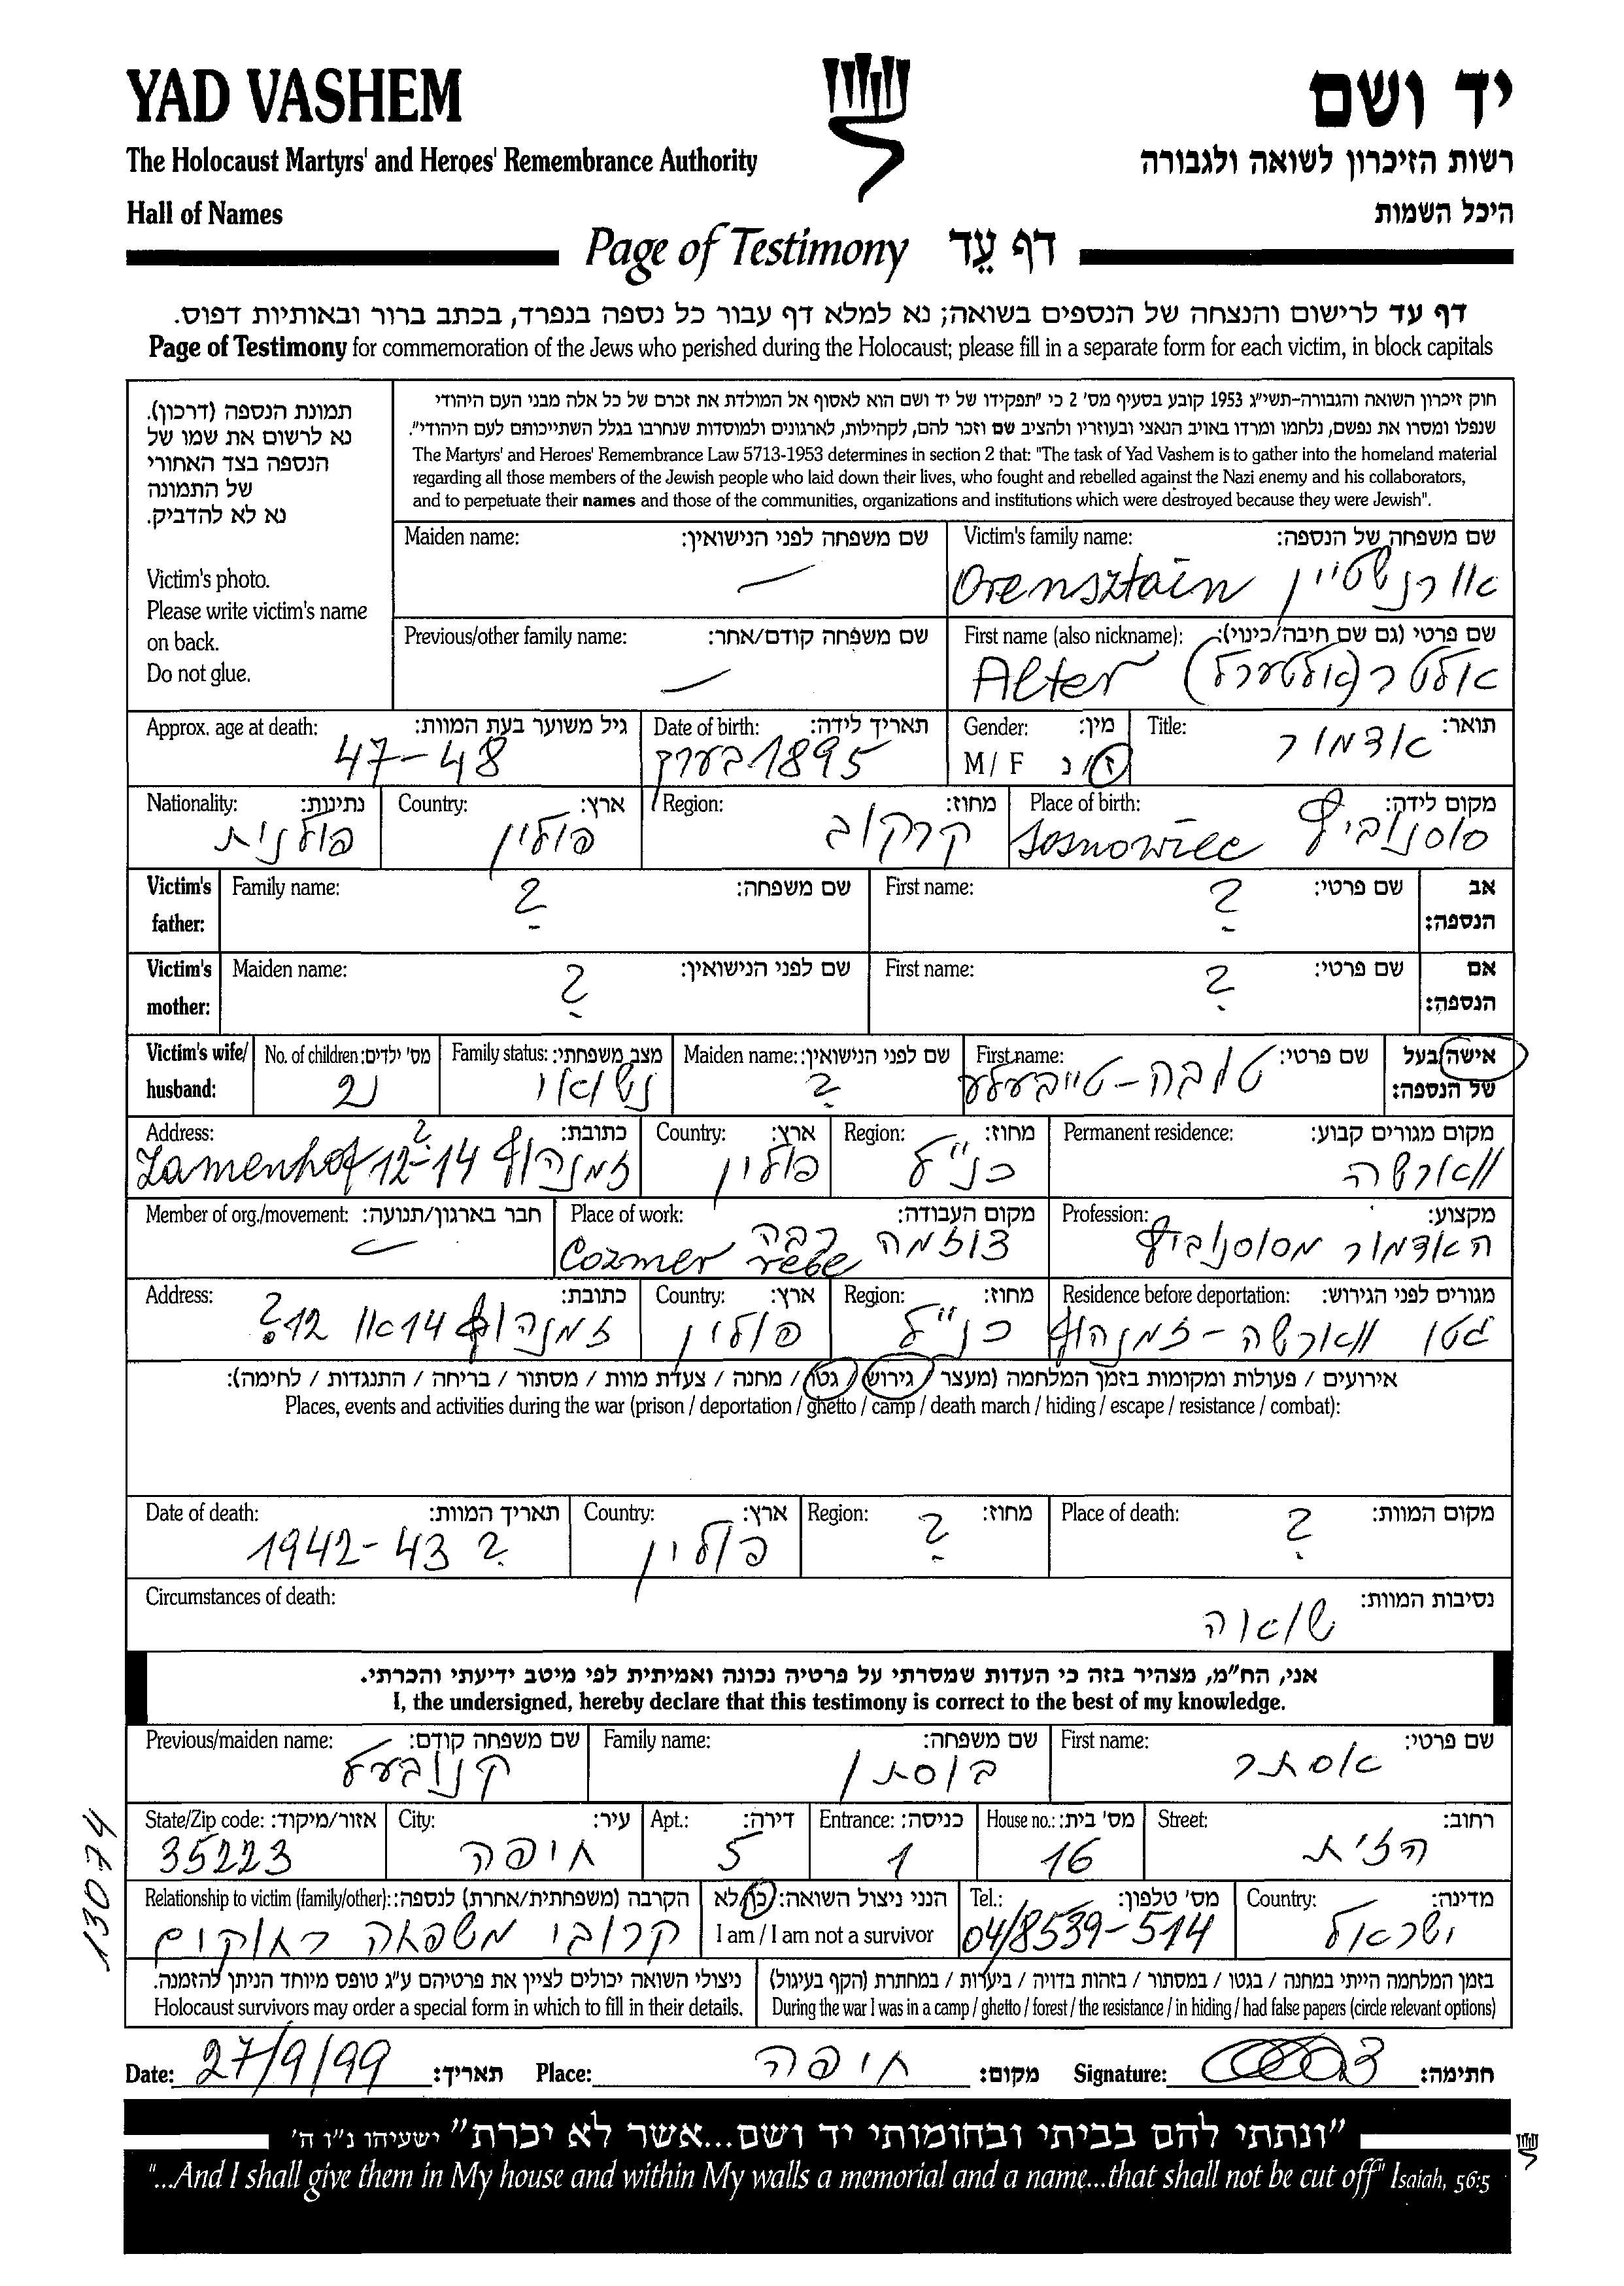 YAD VASHEM
יד ושם
The Holocaust Martyrs' and Heroes' Remembrance Authority
רשות הזיכרון לשואה ולגבורה
Hall of Names
היכל השמות
Page of Testimony דף עֵד
דף עד לרישום והנצחה של הנספים בשואה; נא למלא דף עבור כל נספה בנפרד, בכתב ברור ובאותיות דפוס.
Page of Testimony for commemoration of the Jews who perished during the Holocaust; please fill in a separate form for each victim, in block capitals
תמונת הנספה (דרכון).
נא לרשום את שמו של
הנספה בצד האחורי
של התמונה
נא לא להדביק.
Victim's photo.
Please write victim's name
on back.
Do not glue.
חוק זיכרון השואה והגבורה-תשי"ג 1953 קובע בסעיף מס' 2 כי "תפקידו של יד ושם הוא לאסוף אל המולדת את זכרם של כל אלה מבני העם היהודי
שנפלו ומסרו את נפשם, נלחמו ומרדו באויב הנאצי ובעוזריו ולהציב שם וזכר להם, לקהילות, לארגונים ולמוסדות שנחרבו בגלל השתייכותם לעם היהודי".
The Martyrs' and Heroes' Remembrance Law 5713-1953 determines in section 2 that: "The task of Yad Vashem is to gather into the homeland material
regarding all those members of the Jewish people who laid down their lives, who fought and rebelled against the Nazi enemy and his collaborators,
and to perpetuate their names and those of the communities, organizations and institutions which were destroyed because they were Jewish".
Maiden name: שם משפחה לפני הנישואין:
—
Victim's family name: שם משפחה של הנספה:
Orensztain אורנשטיין
Previous/other family name: שם משפחה קודם/אחר:
—
First name (also nickname): שם פרטי (גם שם חיבה/כינוי):
Alter אלטר (אלטערל)
Approx. age at death: גיל משוער בעת המוות:
47-48
Date of birth: תאריך לידה:
1895 בערך
Gender: מין:
M / F ז/נ
Title: תואר:
אדמור
Nationality: נתינות:
פולנית
Country: ארץ:
פולין
Region: מחוז:
קרקוב
Place of birth: מקום לידה:
Sosnowiec סוסנוביץ
Victim's father: Family name: שם משפחה: ?
First name: שם פרטי: ?
אב הנספה:
Victim's mother: Maiden name: שם לפני הנישואין: ?
First name: שם פרטי: ?
אם הנספה:
Victim's wife/husband:
No. of children: מס' ילדים:
2
Family status: מצב משפחתי:
נשואוי
Maiden name: שם לפני הנישואין:
?
First name: שם פרטי:
טובה-טייבעלע
אישה/בעל של הנספה:
Address: כתובת:
Zamenhof 12-14 ? זמנהוף
Country: ארץ:
פולין
Region: מחוז:
כנ"ל
Permanent residence: מקום מגורים קבוע:
ווארשה
Member of org./movement: חבר בארגון/תנועה:
—
Place of work: מקום העבודה:
Cozmer rebe צוזמה רבה
Profession: מקצוע:
האדמור מסוסנוביץ
Address: כתובת:
זמנהוף 14 או 12 ?
Country: ארץ:
פולין
Region: מחוז:
כנ"ל
Residence before deportation: מגורים לפני הגירוש:
גטו ווארשה - זמנהוף
אירועים / פעולות ומקומות בזמן המלחמה (מעצר / גירוש / גטו / מחנה / צעדת מוות / מסתור / בריחה / התנגדות / לחימה):
Places, events and activities during the war (prison / deportation / ghetto / camp / death march / hiding / escape / resistance / combat):
Date of death: תאריך המוות:
1942-43 ?
Country: ארץ:
פולין
Region: מחוז:
?
Place of death: מקום המוות:
?
Circumstances of death: נסיבות המוות:
שואה
אני, הח"מ, מצהיר בזה כי העדות שמסרתי על פרטיה נכונה ואמיתית לפי מיטב ידיעתי והכרתי.
I, the undersigned, hereby declare that this testimony is correct to the best of my knowledge.
Previous/maiden name: שם משפחה קודם:
קנובעל
Family name: שם משפחה:
בוסתן
First name: שם פרטי:
אסתר
State/Zip code: אזור/מיקוד:
35223
City: עיר:
חיפה
Apt.: דירה:
5
Entrance: כניסה:
1
House no.: מס' בית:
16
Street: רחוב:
הזית
Relationship to victim (family/other): הקרבה (משפחתית/אחרת) לנספה:
קרובי משפחה רחוקים
הנני ניצול השואה: כן/לא
I am / I am not a survivor
Tel.: מס' טלפון:
04/8539-514
Country: מדינה:
ישראל
ניצולי השואה יכולים לציין את פרטיהם ע"ג טופס מיוחד הניתן להזמנה.
Holocaust survivors may order a special form in which to fill in their details.
בזמן המלחמה הייתי במחנה / בגטו / במסתור / בזהות בדויה / ביערות / במחתרת (הקף בעיגול)
During the war I was in a camp / ghetto / forest / the resistance / in hiding / had false papers (circle relevant options)
13074
Date: 27/9/99 תאריך: Place: חיפה מקום: Signature: חתימה:
"ונתתי להם בביתי ובחומותי יד ושם...אשר לא יכרת" ישעיהו נ"ו ה'
"...And I shall give them in My house and within My walls a memorial and a name...that shall not be cut off" Isaiah, 56:5